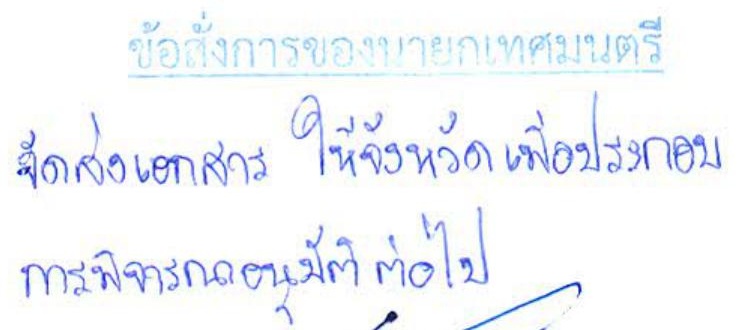 ข้อสั่งการของนายกเทศมนตรี
จัดส่งเอกสาร ให้จังหวัด เพื่อประกอบ
การพิจารณาอนุมัติ ต่อไป